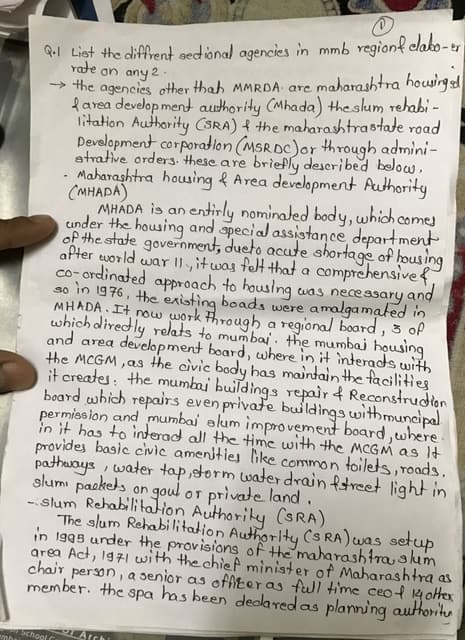 1
Q.1 List the diffrent sectional agencies in mmb region & elabo-er
rate on any 2.
→ the agencies other thah MMRDA are maharashtra housing
& area development authority (Mhada) the slum rehabi-
litation Authority (SRA) & the maharashtra state road
Development corporation (MSRDC) or through admini-
strative orders. these are briefly described below.
- Maharashtra housing & Area development Authority
(MHADA)
MHADA is an entirly nominated body, which comes
under the housing and special assistance department
of the state government, due to acute shortage of housing
after world war 11., it was felt that a comprehensive &
co-ordinated approach to housing was necessary and
so in 1976, the existing boads were amalgamated in
MHADA. It now work through a regional board, 3 of
which diredly relats to mumbai. the mumbai housing
and area development board, where in it interacts with
the MCGM, as the civic body has maintain the facilities
it creates: the mumbai buildings repair & Reconstruction
board which repairs even private buildings with muncipal
permission and mumbai slum improvement board, where
in it has to interact all the time with the MCGM as It
provides basic civic amenities like common toilets, roads,
pathways, water tap, storm water drain & street light in
slums packets on gout or private land.
- Slum Rehabilitation Authority (SRA)
The slum Rehabilitation Authority (SRA) was setup
in 1995 under the provisions of the maharashtra slum
area Act, 1971 with the chief minister of Maharashtra as
chair person, a senior as officer as full time ceo & 14 other
member. the spa has been declared as planning authority
School C
Archi